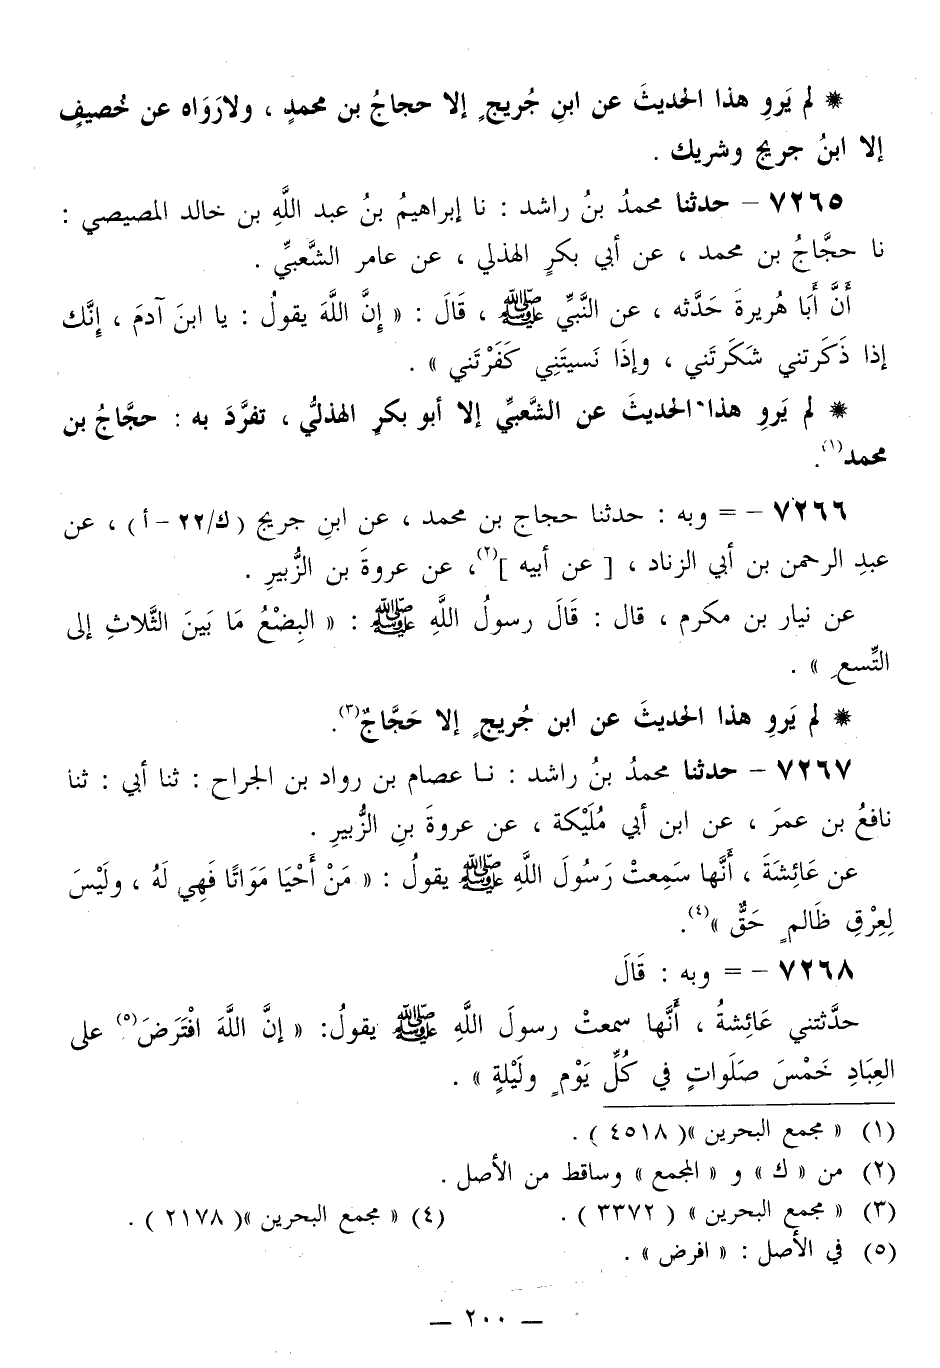 * لم يَروِ هذا الحديثَ عن ابنِ جُريجٍ إلا حجاجُ بن محمدٍ ، ولارَوَاه عن خُصيفٍ
إلا ابنُ جريج وشريك .
٧٢٦٥ – حدثنا محمدُ بنُ راشد : نا إبراهيمُ بنُ عبد اللَّهِ بن خالد المصيصي :
نا حجَّاجُ بن محمد ، عن أبي بكرٍ الهذلي ، عن عامر الشَّعبيِّ .
أَنَّ أَبَا هُريرةَ حَدَّثه ، عن النَّبيِّ ﷺ ، قَالَ : « إِنَّ اللَّهَ يقولُ : يا ابنَ آدمَ ، إِنَّك
إذا ذَكَرتني شَكَرتَني ، وإذَا نَسيتَنِي كَفَرْتَني » .
* لم يَروِ هذا الحديثَ عن الشَّعبيِّ إلا أبو بكرٍ الهذليُّ ، تفرَّدَ به : حجَّاجُ بن
محمد(١).
٧٢٦٦ – = وبه : حدثنا حجاج بن محمد ، عن ابنِ جريج (ك/٢٢ – أ) ، عن
عبدِ الرحمن بن أبي الزناد ، [ عن أبيه ](٢)، عن عروةَ بن الزُّبيرِ .
عن نيار بن مكرم ، قال : قَالَ رسولُ اللَّهِ ﷺ : « البِضْعُ مَا بَينَ الثَّلاثِ إلى
التِّسعِ » .
* لم يَروِ هذا الحديثَ عن ابن جُريجٍ إلا حَجَّاجٌ(٣).
٧٢٦٧ – حدثنا محمدُ بنُ راشد : نـا عصام بن رواد بن الجراح : ثنا أبي : ثنا
نافعُ بن عمرَ ، عن ابن أبي مُلَيْكة ، عن عروةَ بنِ الزُّبيرِ .
عن عَائِشةَ ، أَنَّها سَمِعتْ رَسُولَ اللَّهِ ﷺ يقولُ : « مَنْ أَحْيَا مَوَاتًا فَهِي لَهُ ، ولَيْسَ
لِعِرْقِ ظَالمٍ حَقٌّ »(٤).
٧٢٦٨ – = وبه : قَالَ
حدَّثتني عَائِشةُ ، أَنَّها سمعتْ رسولَ اللَّهِ ﷺ يقولُ: « إنَّ اللَّهَ افْتَرَضَ(٥) على
العِبَادِ خَمْسَ صَلَواتٍ في كُلِّ يَوْمٍ ولَيْلةٍ » .
(١) « مجمع البحرين »( ٤٥١٨ ) .
(٢) من « ك » و « المجمع » وساقط من الأصل .
(٣) « مجمع البحرين » ( ٣٣٧٢ ) . (٤) « مجمع البحرين »( ٢١٧٨ ) .
(٥) في الأصل : « افرض » .
— ٢٠٠ —